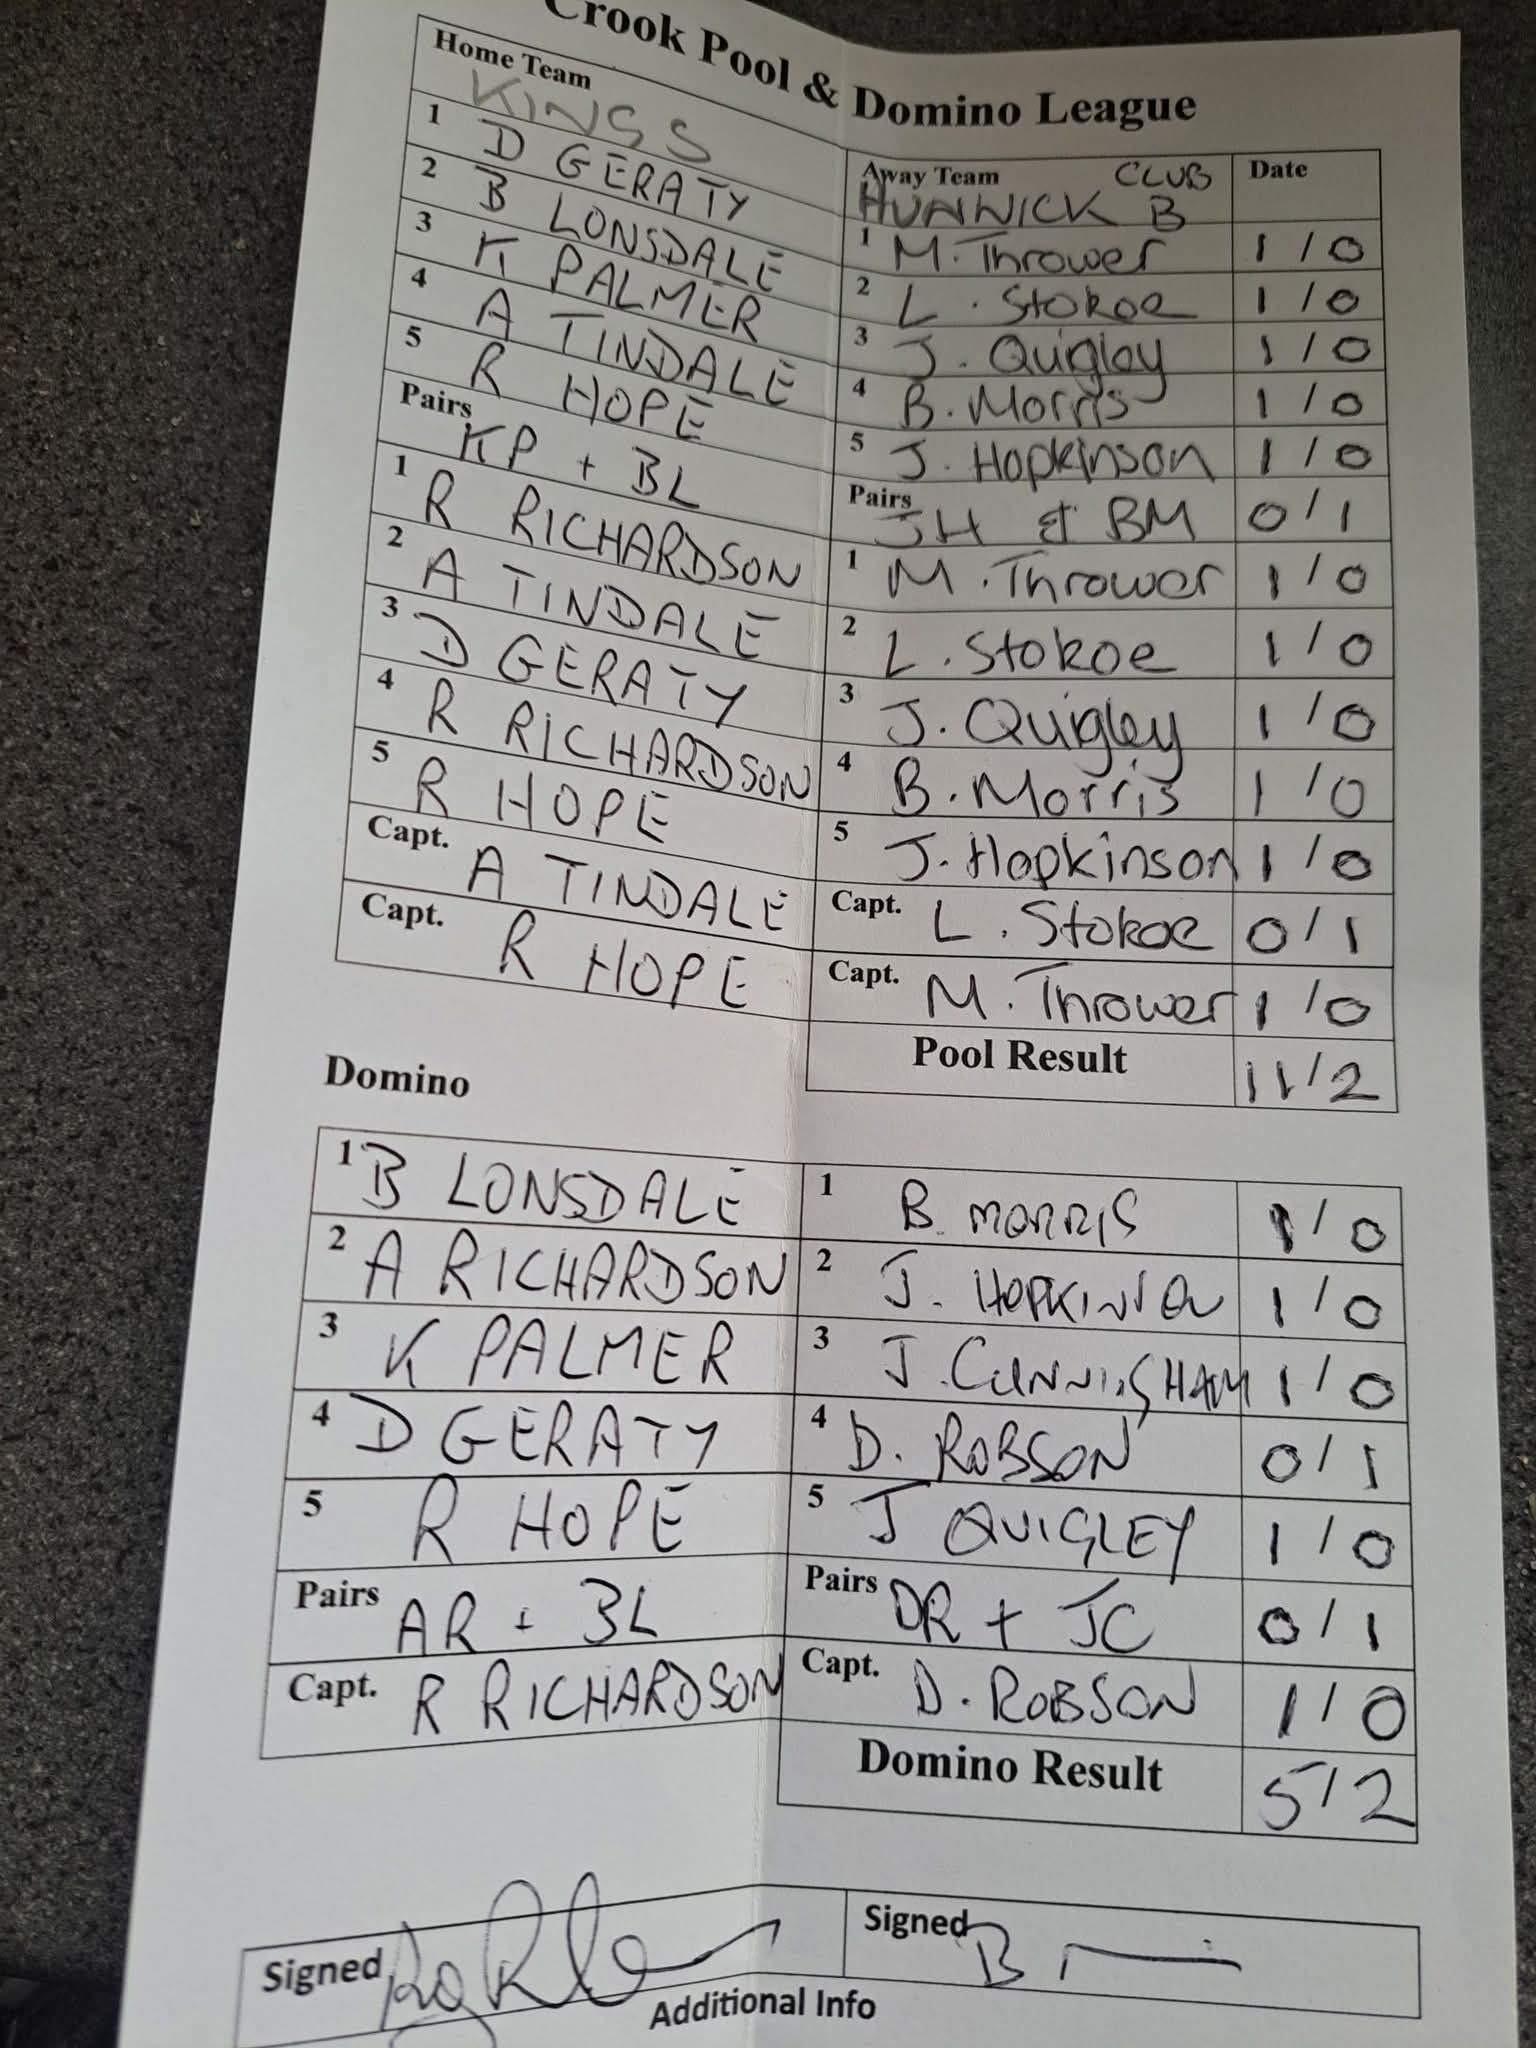 Crook Pool & Domino League
Home Team KINGS S
Away Team CLUB HUNWICK B Date
1 D GERATY 1 M. Thrower 1/0
2 B LONSDALE 2 L. Stokoe 1/0
3 K PALMER 3 J. Quigley 1/0
4 A TINDALE 4 B. Morris 1/0
5 R HOPE 5 J. Hopkinson 1/0
Pairs KP + BL Pairs JH & BM 0/1
1 R RICHARDSON 1 M. Thrower 1/0
2 A TINDALE 2 L. Stokoe 1/0
3 D GERATY 3 J. Quigley 1/0
4 R RICHARDSON 4 B. Morris 1/0
5 R HOPE 5 J. Hopkinson 1/0
Capt. A TINDALE Capt. L. Stokoe 0/1
Capt. R HOPE Capt. M. Thrower 1/0
Pool Result 11/2
Domino
1 B LONSDALE 1 B. MORRIS 1/0
2 A RICHARDSON 2 J. HOPKINSON 1/0
3 K PALMER 3 J. CUNNINGHAM 1/0
4 D GERATY 4 D. ROBSON 0/1
5 R HOPE 5 J QUIGLEY 1/0
Pairs AR + BL Pairs DR + JC 0/1
Capt. R RICHARDSON Capt. D. ROBSON 1/0
Domino Result 5/2
Signed Signed B
Additional Info